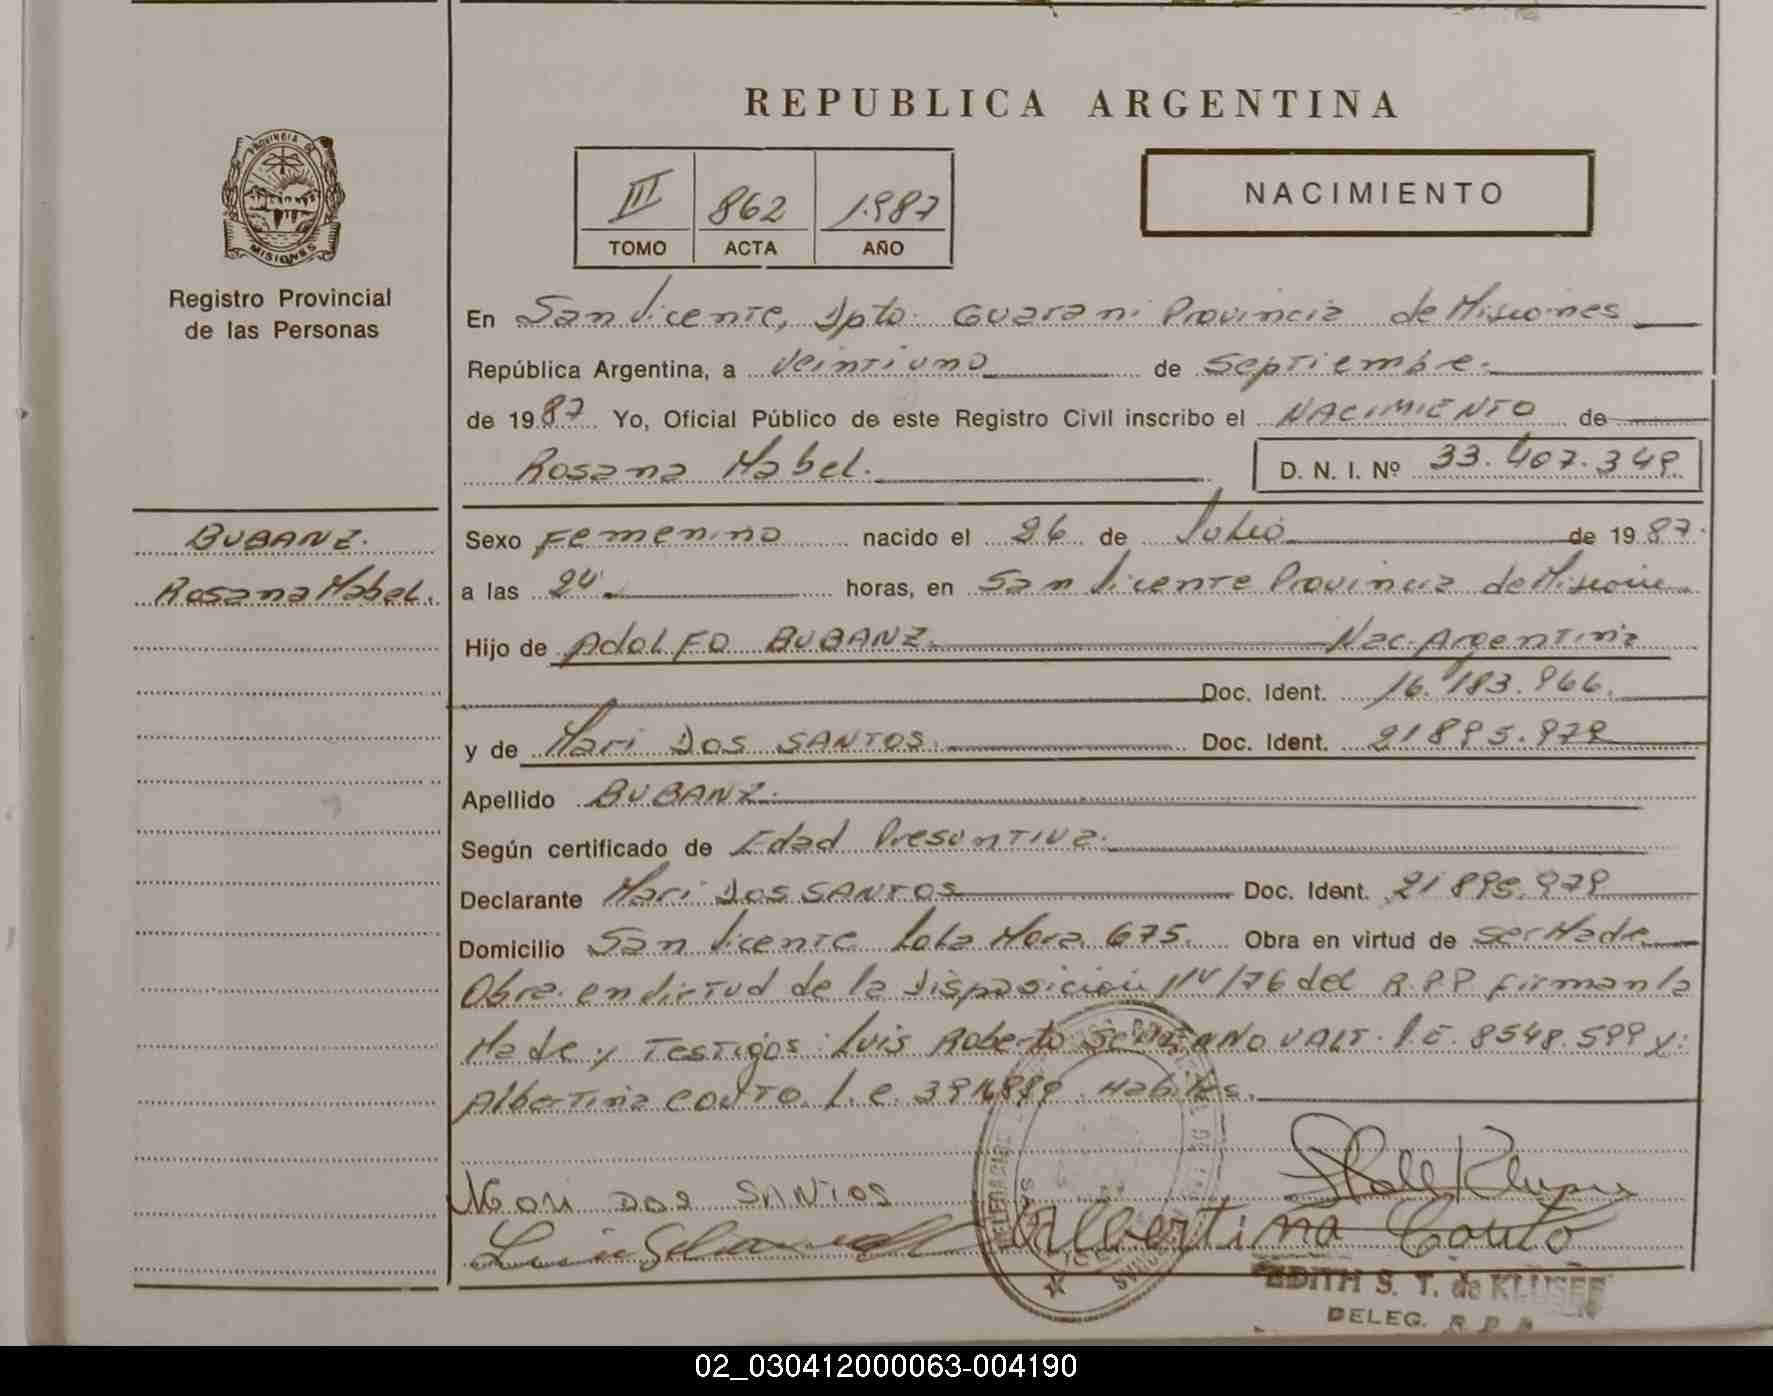 REPUBLICA ARGENTINA
PROVINCIA DE MISIONES
Registro Provincial
de las Personas
III 862 1.987
TOMO ACTA AÑO
NACIMIENTO
En San Vicente, Dpto. Guarani Provincia de Misiones
República Argentina, a Veintiuno de Septiembre.
de 1987 Yo, Oficial Público de este Registro Civil inscribo el NACIMIENTO de
Rosana Mabel. D. N. I. Nº 33.407.349
BUBANZ.
Rosana Mabel.
Sexo Femenino nacido el 26 de Julio de 1987.
a las 24. horas, en San Vicente Provincia de Misiones
Hijo de Adolfo BUBANZ. Nac. Argentina
Doc. Ident. 16.183.966.
y de Mari Dos SANTOS. Doc. Ident. 21895.979
Apellido BUBANZ.
Según certificado de Edad Presuntiva.
Declarante Mari Dos SANTOS Doc. Ident. 21895.979
Domicilio San Vicente Lola Mora 675. Obra en virtud de ser Madre
Obra en virtud de la Disposición 114/76 del R.P.P firman la
Made y Testigos: Luis Roberto VALT. L.E. 8548.599 y:
Albertina COUTO. L.C. Habiles.
Mari DOS SANTOS
Luis
Albertina Couto
EDITH S. T. de KLUSEF
DELEG. R. P. P.
02_030412000063-004190